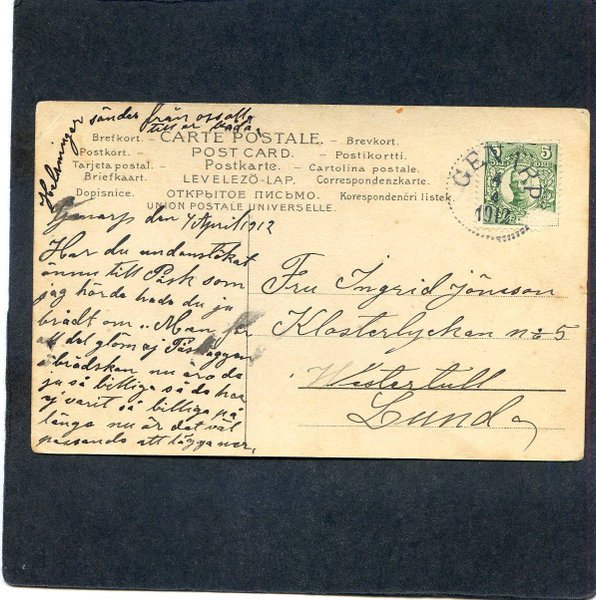 Helsningar sändes från oss alla
till er båda,
CARTE POSTALE.
Brefkort. - - Brevkort.
Postkort. - POST CARD. - Postikortti.
Tarjeta postal. - Postkarte. - Cartolina postale.
Briefkaart. - LEVELEZŐ-LAP. - Correspondenzkarte.
Dopisnice. - ОТКРЫТОЕ ПИСЬМО. - Korespondenčri listek
UNION POSTALE UNIVERSELLE.
5
GENARP
4
4
1912
Genarp den 4 April 1912
Har du undanstökat
ännu till Påsk som
jag hörde hade du ju
brådt om
att det glöm ej Påskäggen
i brådskan nu äro da
ju så billiga så de har
ej varit så billiga på
länge nu är det väl
passande att lägga ner,
Fru Ingrid Jönsson
Klosterlyckan no 5
Westertull
Lund